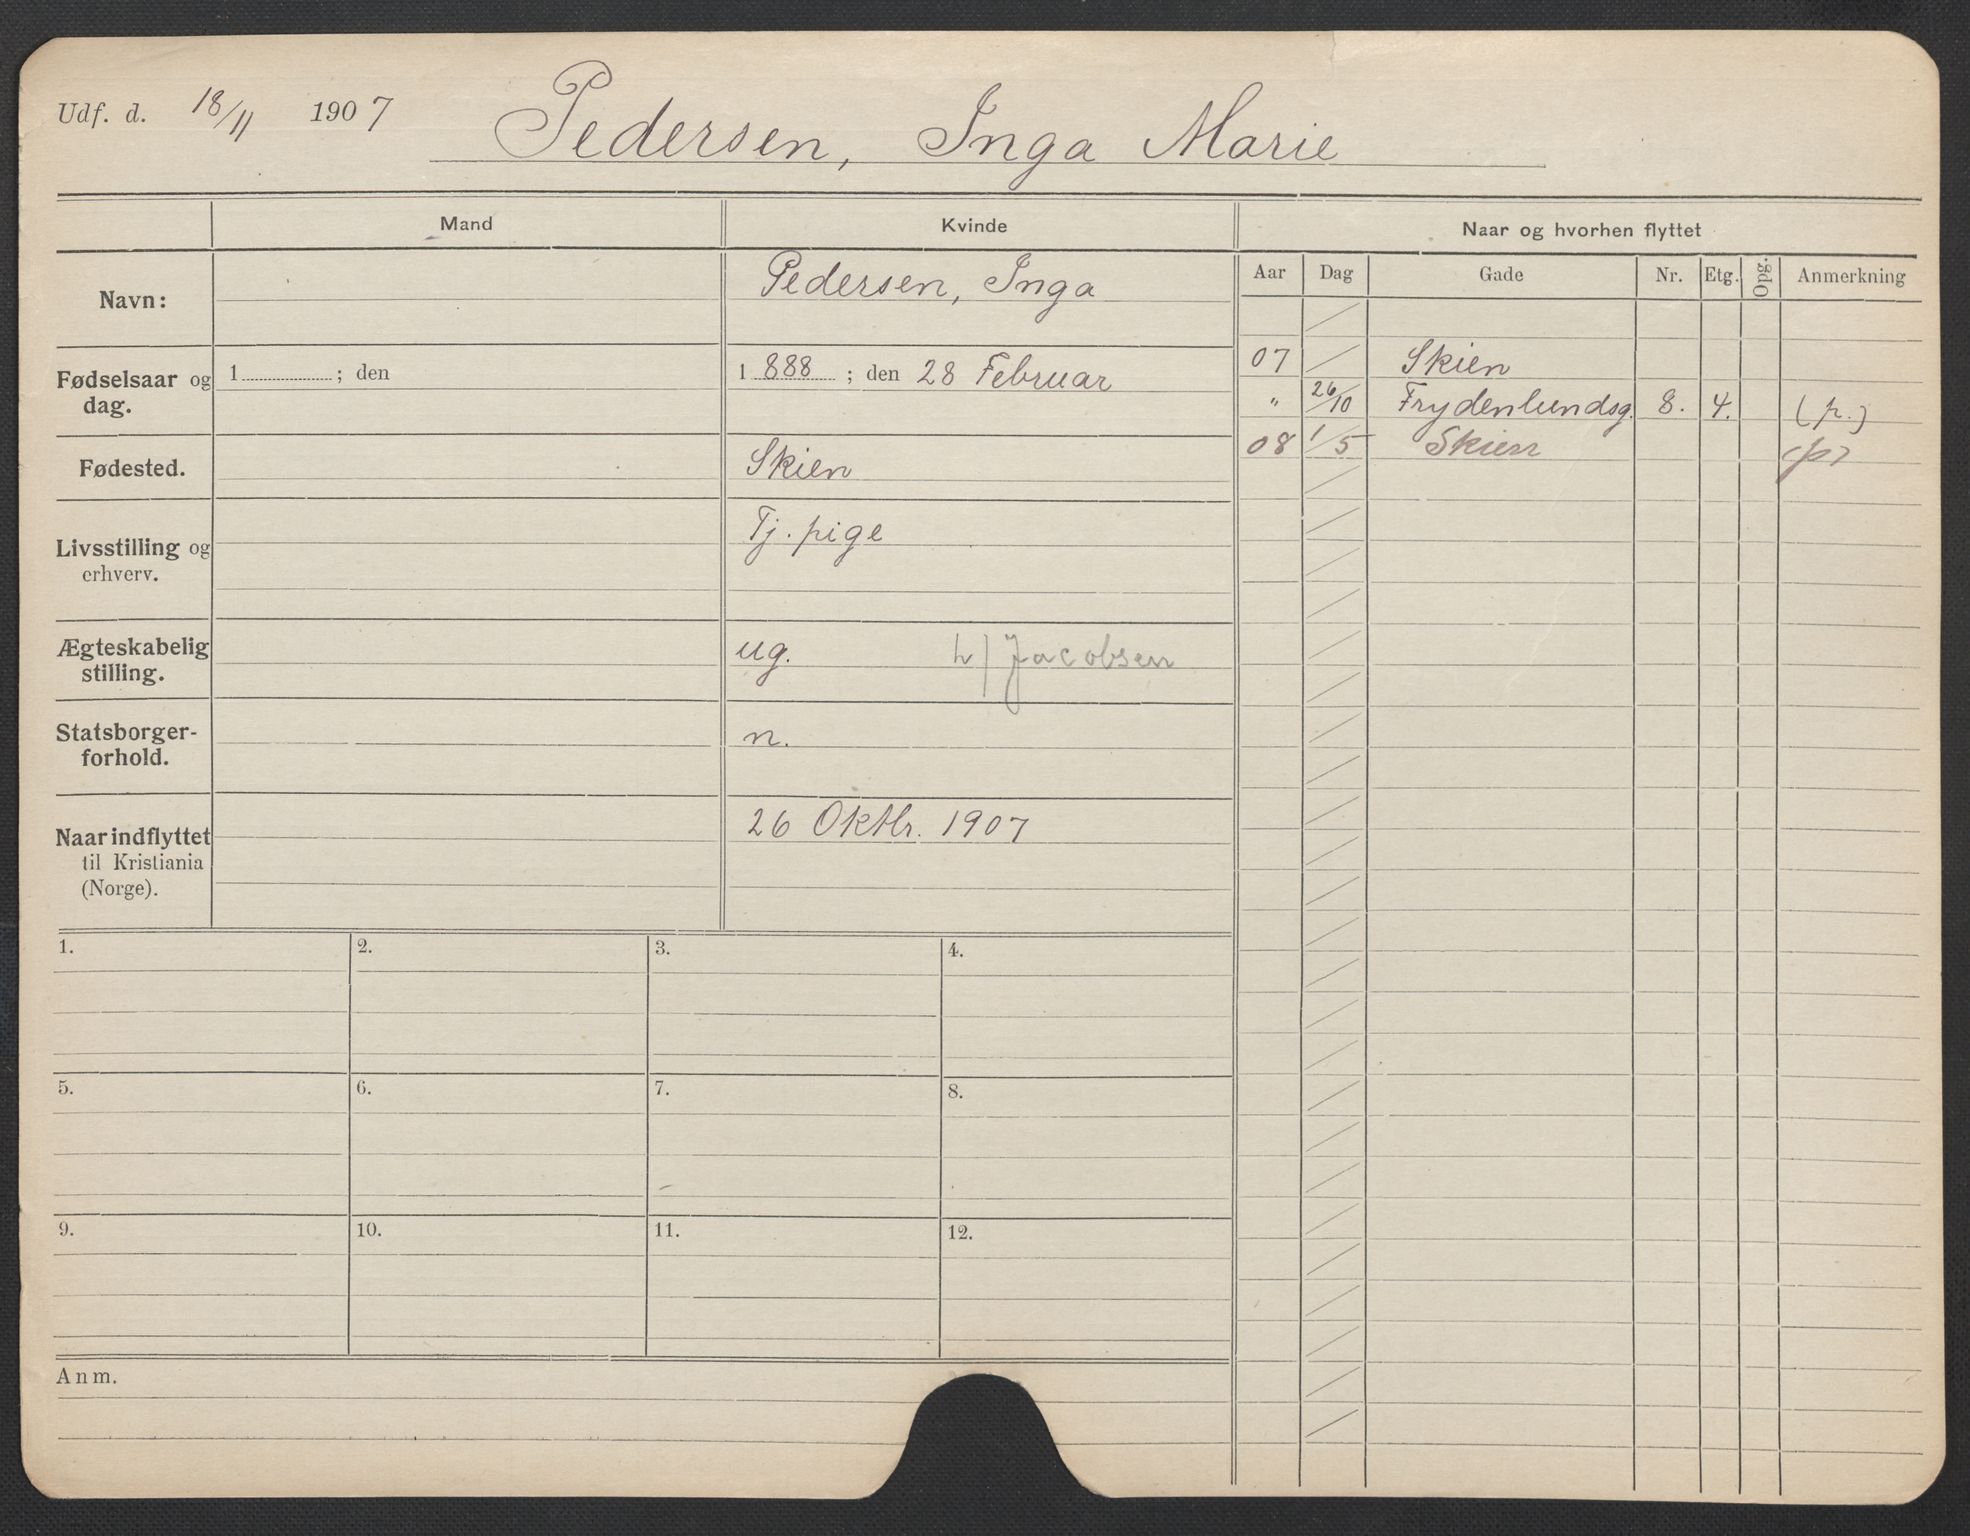 Udf. d. 18/11 1907 Pedersen, Inga Marie
Mand Kvinde Naar og hvorhen flyttet
Aar Dag Gade Nr. Etg. Opg. Anmerkning
Navn: Pedersen, Inga
Fødselsaar og dag. 1 ; den 1 888 ; den 28 Februar
Fødested. Skien
Livsstilling og erhverv. Tj. pige
Ægteskabelig stilling. ug. h/ Jacobsen
Statsborger-
forhold. n.
Naar indflyttet
til Kristiania
(Norge). 26 Oktbr. 1907
07 Skien
" 26/10 Frydenlundsg. 8. 4. (p.)
08 1/5 Skien (p)
1. 2. 3. 4.
5. 6. 7. 8.
9. 10. 11. 12.
Anm.